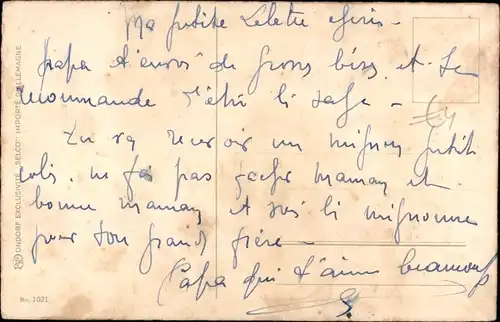 Ma petite Zezette chérie -
papa t'envoi de gros bises et te
recommande d'être bi sage -
Tu va recevoir un mignon petit
colis. ne fai pas gacher maman et
bonne maman et soi bi mignonne
pour ton grand frère -
Papa qui t'aime beaucoup
ONDORF EXCLUSIVITÉ „SELCO" IMPORTÉ D'ALLEMAGNE
No. 1021